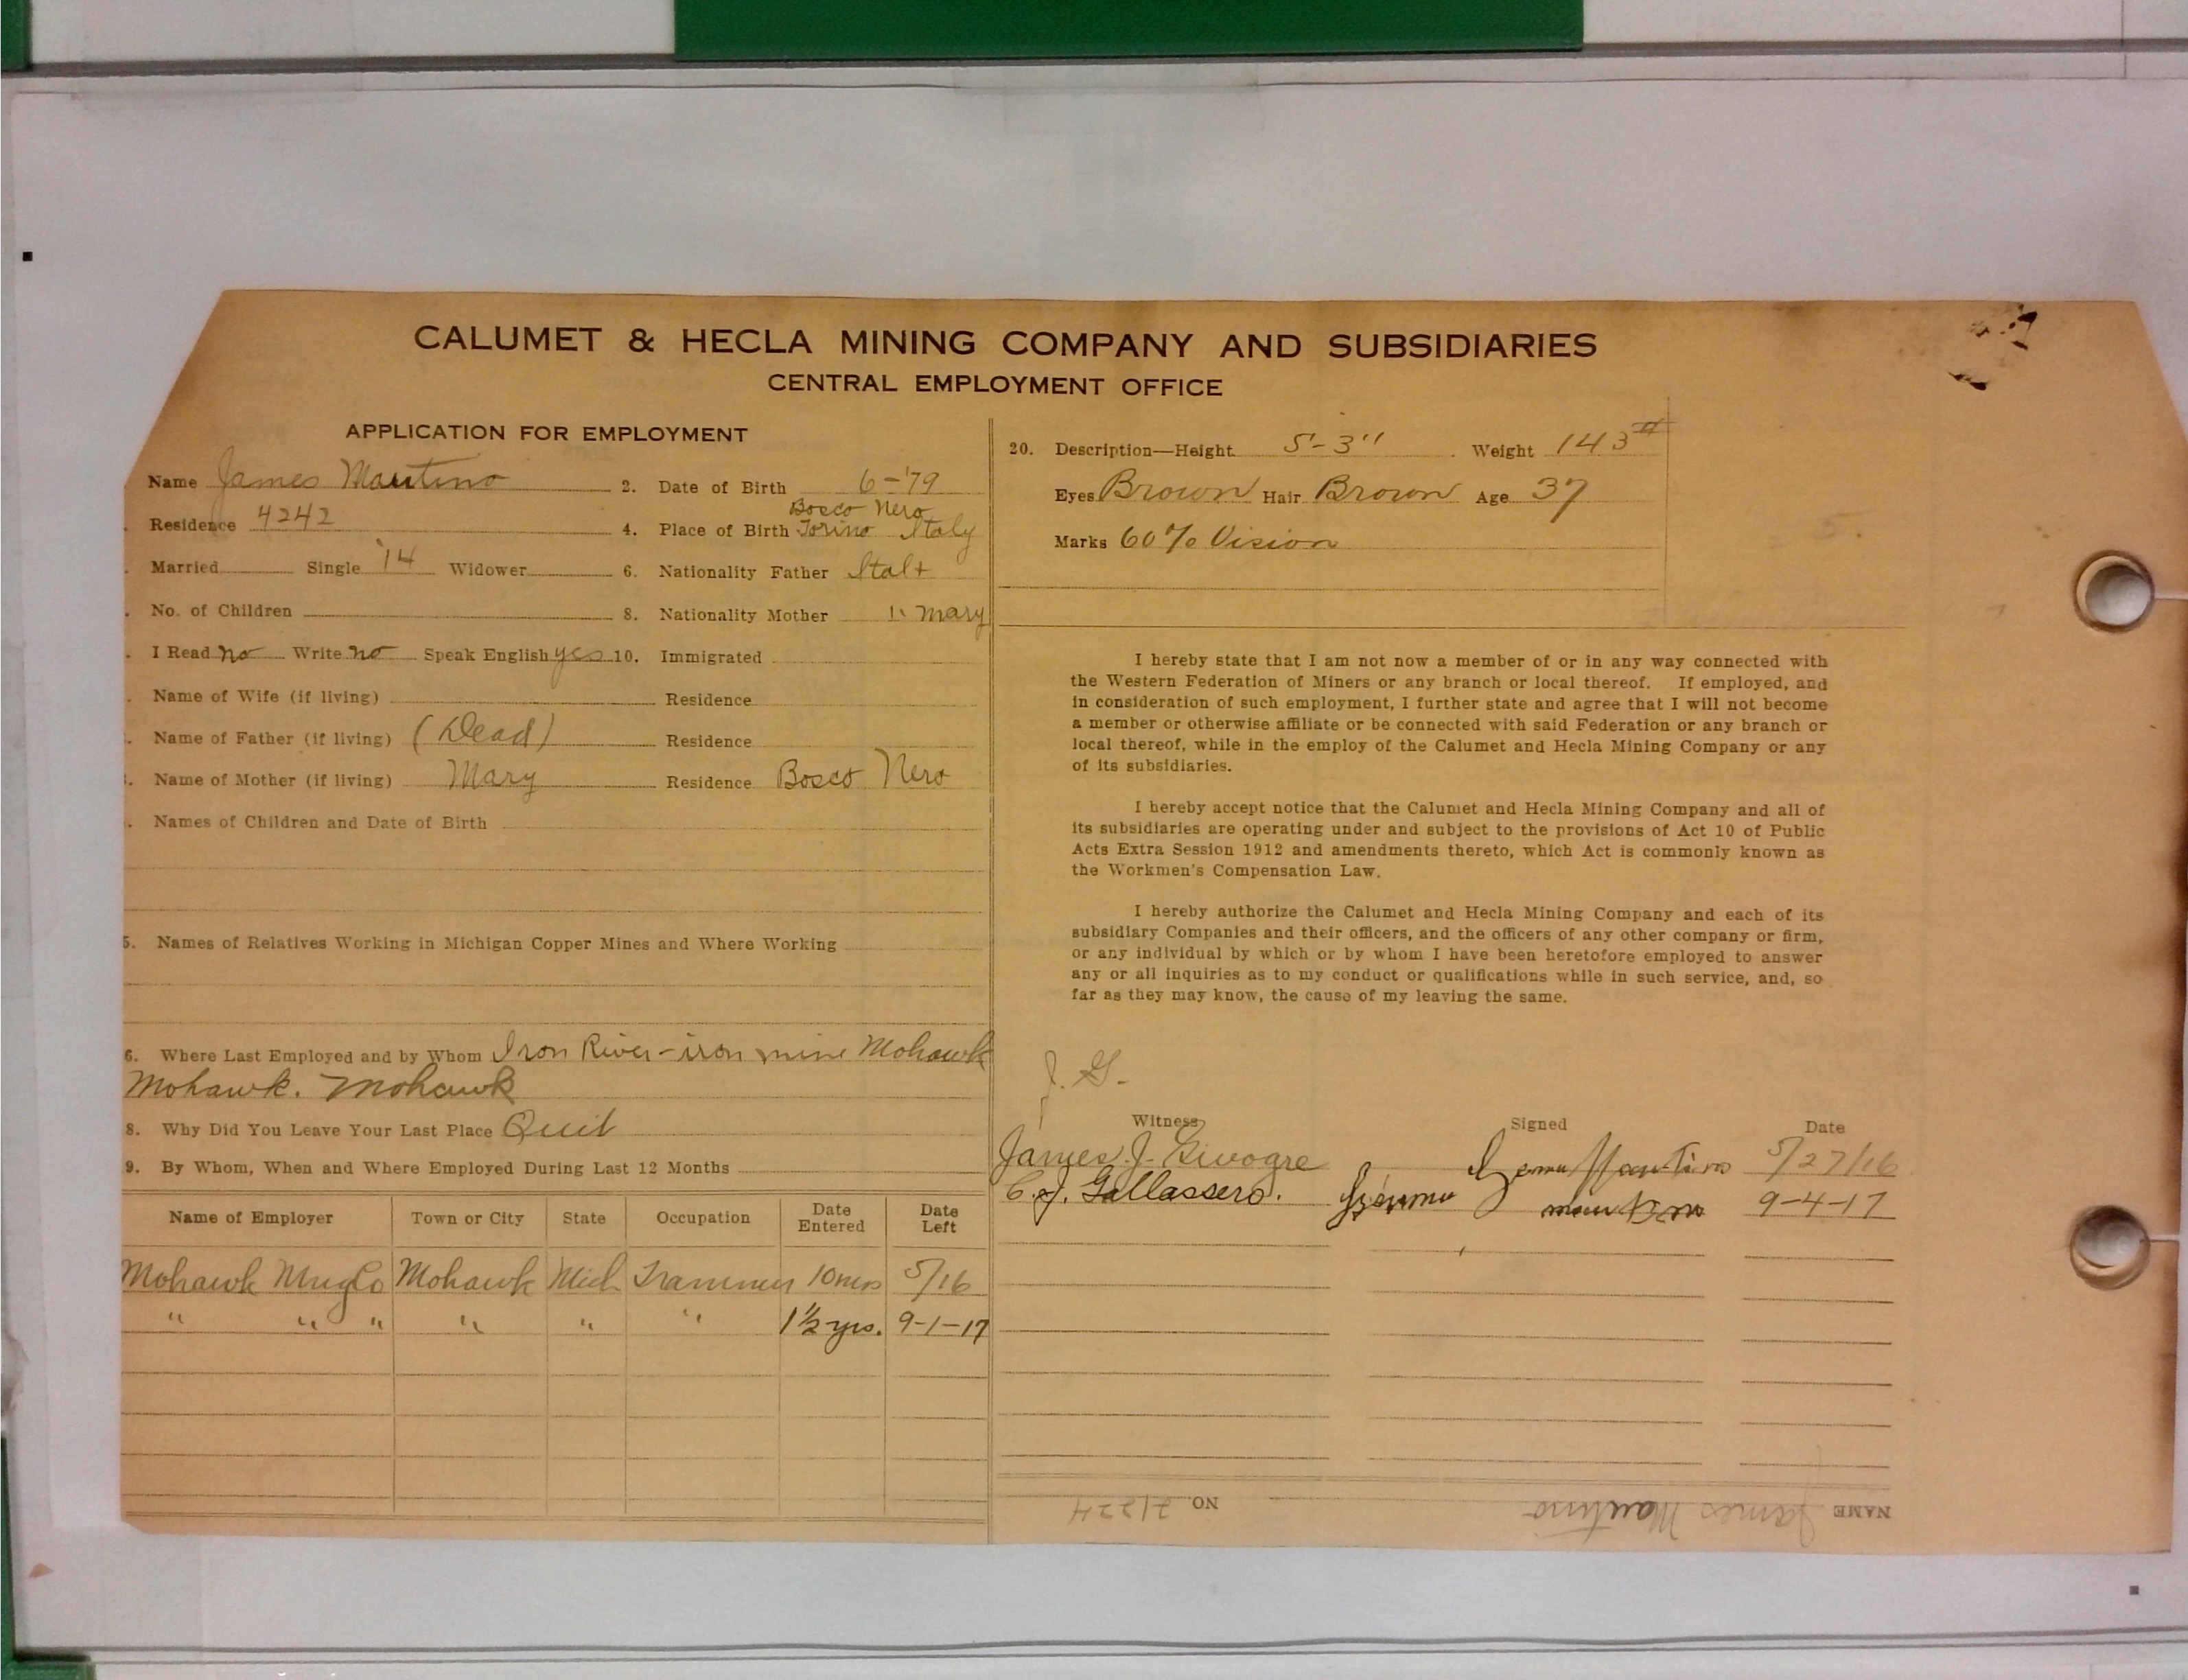 CALUMET & HECLA MINING COMPANY AND SUBSIDIARIES
CENTRAL EMPLOYMENT OFFICE
APPLICATION FOR EMPLOYMENT
Name James Mautino
2. Date of Birth 6-'79
Residence 4242
4. Place of Birth Bosco Nero Torino Italy
Married Single '14 Widower
6. Nationality Father Ital+
No. of Children
8. Nationality Mother " mary
I Read no Write no Speak English yes 10. Immigrated
Name of Wife (if living) Residence
Name of Father (if living) (Dead) Residence
Name of Mother (if living) Mary Residence Bosco Nero
Names of Children and Date of Birth
5. Names of Relatives Working in Michigan Copper Mines and Where Working
6. Where Last Employed and by Whom Iron River-iron mine Mohawk
Mohawk. Mohawk
8. Why Did You Leave Your Last Place Quit
9. By Whom, When and Where Employed During Last 12 Months
Name of Employer Town or City State Occupation Date Entered Date Left
Mohawk Mng Co Mohawk Mich Trammer 10 mos 5/16
" " " " " " 1½ yrs. 9-1-17
20. Description—Height 5'-3" Weight 143#
Eyes Brown Hair Brown Age 37
Marks 60% Vision
I hereby state that I am not now a member of or in any way connected with
the Western Federation of Miners or any branch or local thereof. If employed, and
in consideration of such employment, I further state and agree that I will not become
a member or otherwise affiliate or be connected with said Federation or any branch or
local thereof, while in the employ of the Calumet and Hecla Mining Company or any
of its subsidiaries.
I hereby accept notice that the Calumet and Hecla Mining Company and all of
its subsidiaries are operating under and subject to the provisions of Act 10 of Public
Acts Extra Session 1912 and amendments thereto, which Act is commonly known as
the Workmen's Compensation Law.
I hereby authorize the Calumet and Hecla Mining Company and each of its
subsidiary Companies and their officers, and the officers of any other company or firm,
or any individual by which or by whom I have been heretofore employed to answer
any or all inquiries as to my conduct or qualifications while in such service, and, so
far as they may know, the cause of my leaving the same.
J. G.
Witness Signed Date
James J. Givogre 5/27/16
C. J. Gallassero. 9-4-17
NAME James Mautino NO. 21224